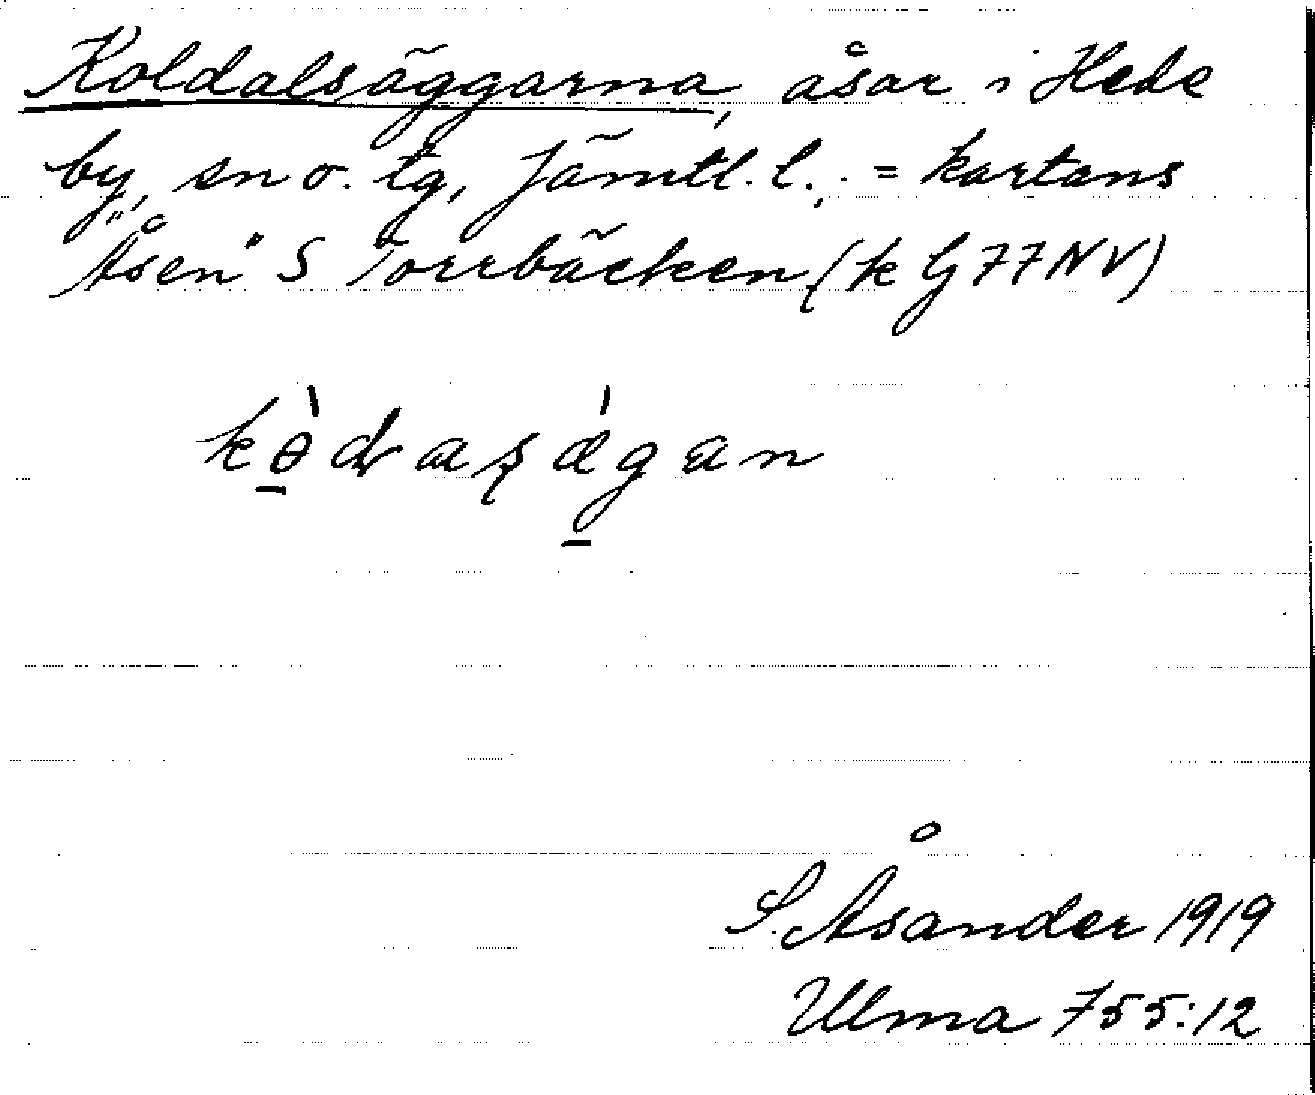 Koldalsäggarna, åsar i Hede
by, sn o. tg, Jämtl. l., = kartans
"Åsen" S Torrbäcken (k G 77 NV)
S. Åsander 1919
Ulma 755:12